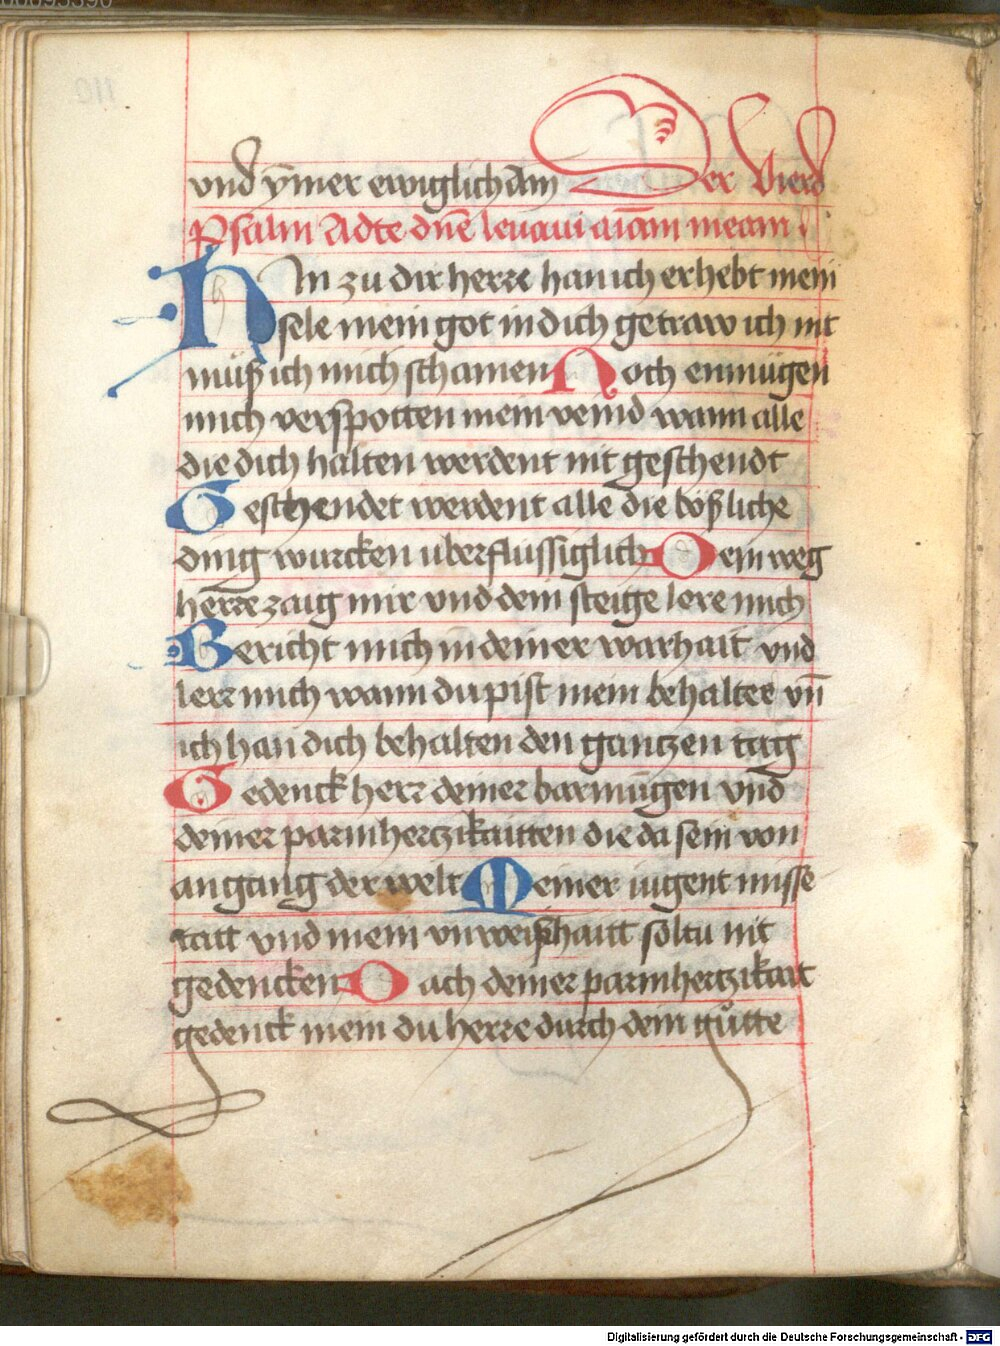 vnd ÿmer ewiglich Am̄ Der Vierd
Psalm Adte dn̄e leuaui aīam meam
Hin zu dir herre han ich erhebt mein
sele mein got in dich getraw ich nit
müß ich mich schamen Noch enmügen
mich verspotten mein veind wann alle
die dich halten werdent nit geschendt
Geschendet werdent alle die bößliche
ding wurcken uberflussiglich Dein weg
herre zaig mir vnd dein steige lere mich
Bericht mich in deiner warhait vnd
lere mich wann du pist mein behalter vn̄
ich han dich behalten den gantzen tag
Gedenck herr deiner barmūgen vnd
deiner parmhertzikaitten die da sein von
angang der welt Meiner iugent misse
tatt vnd mein vnweißhaitt soltu nit
gedencken Nach deiner parmhertzikait
gedenck mein du herre durch dein gůtte
Digitalisierung gefördert durch die Deutsche Forschungsgemeinschaft - DFG